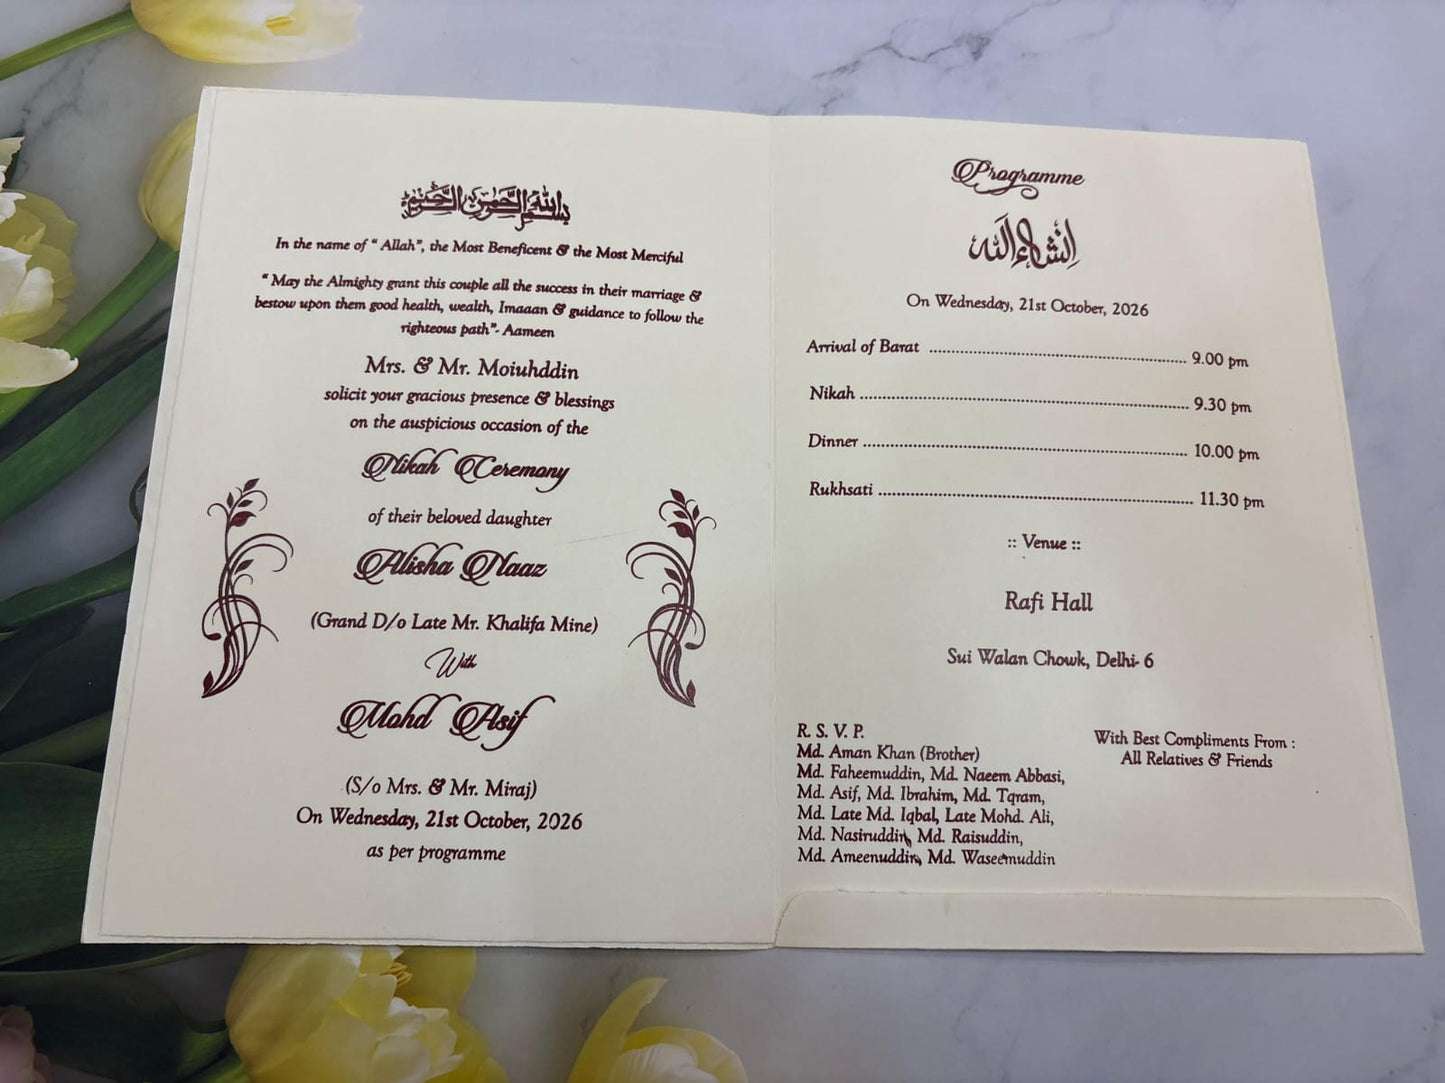 بسم الله الرحمن الرحيم
In the name of " Allah", the Most Beneficent & the Most Merciful
" May the Almighty grant this couple all the success in their marriage &
bestow upon them good health, wealth, Imaaan & guidance to follow the
righteous path"- Aameen
Mrs. & Mr. Moiuhddin
solicit your gracious presence & blessings
on the auspicious occasion of the
Nikah Ceremony
of their beloved daughter
Alisha Naaz
(Grand D/o Late Mr. Khalifa Mine)
With
Mohd Asif
(S/o Mrs. & Mr. Miraj)
On Wednesday, 21st October, 2026
as per programme
Programme
إنشاء الله
On Wednesday, 21st October, 2026
Arrival of Barat ........................ 9.00 pm
Nikah ........................ 9.30 pm
Dinner ........................ 10.00 pm
Rukhsati ........................ 11.30 pm
:: Venue ::
Rafi Hall
Sui Walan Chowk, Delhi- 6
R. S. V. P.
Md. Aman Khan (Brother)
Md. Faheemuddin, Md. Naeem Abbasi,
Md. Asif, Md. Ibrahim, Md. Tqram,
Md. Late Md. Iqbal, Late Mohd. Ali,
Md. Nasiruddin, Md. Raisuddin,
Md. Ameenuddin, Md. Waseemuddin
With Best Compliments From :
All Relatives & Friends